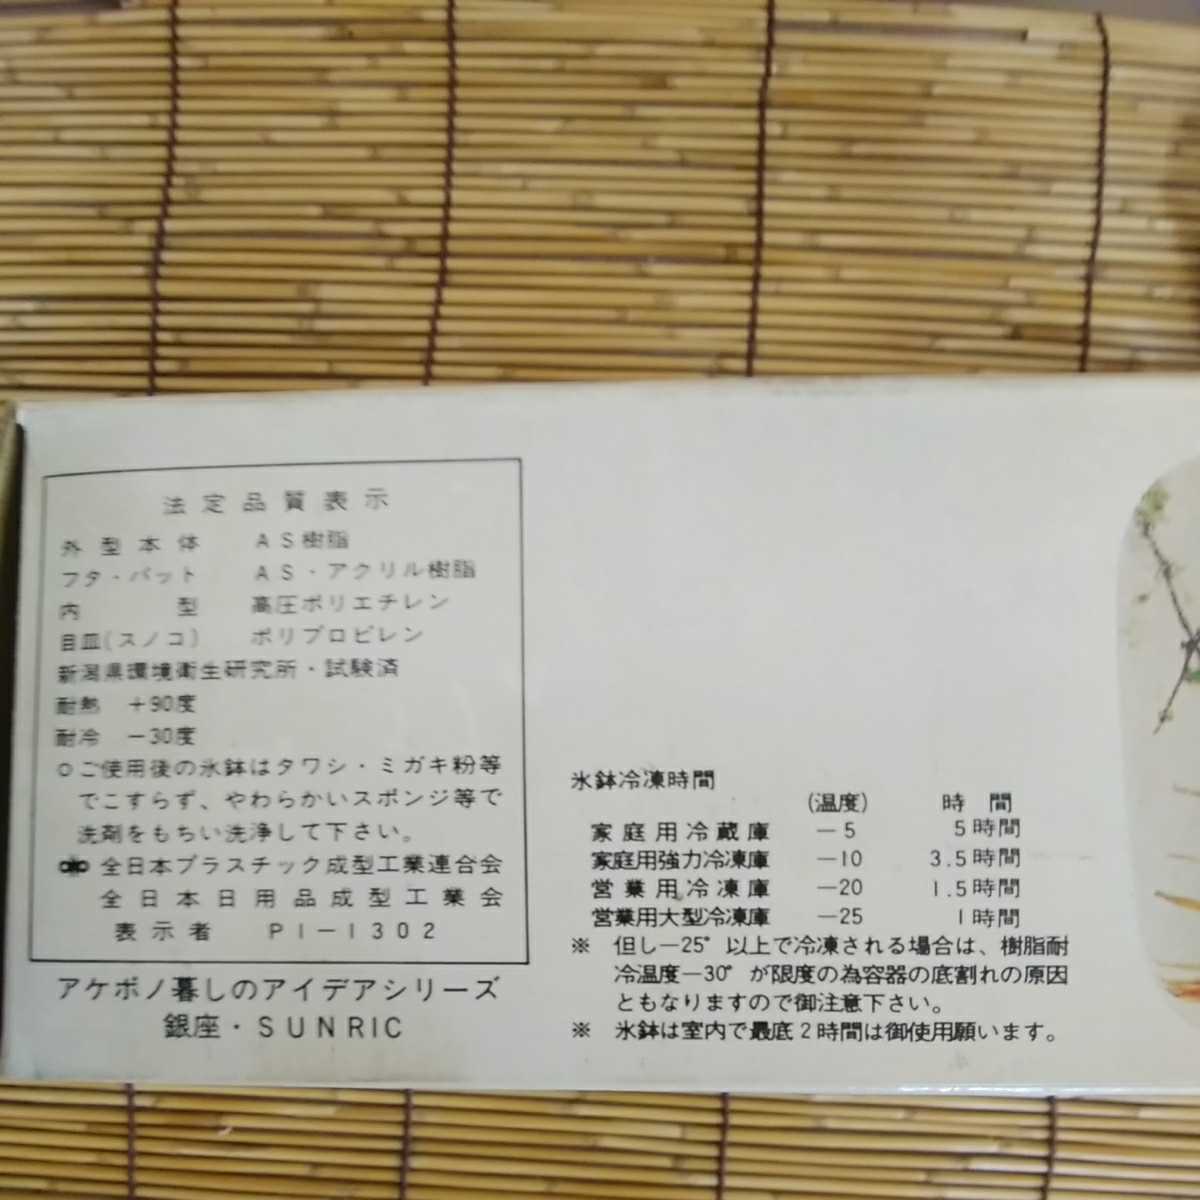 法定品質表示
外型本体 AS樹脂
フタ・バット AS・アクリル樹脂
内型 高圧ポリエチレン
目皿(スノコ) ポリプロピレン
新潟県環境衛生研究所・試験済
耐熱 +90度
耐冷 -30度
○ご使用後の氷鉢はタワシ・ミガキ粉等
でこすらず、やわらかいスポンジ等で
洗剤をもちい洗浄して下さい。
全日本プラスチック成型工業連合会
全日本日用品成型工業会
表示者 PI-1302
アケボノ暮しのアイデアシリーズ
銀座・SUNRIC
氷鉢冷凍時間
(温度) 時間
家庭用冷蔵庫 -5 5時間
家庭用強力冷凍庫 -10 3.5時間
営業用冷凍庫 -20 1.5時間
営業用大型冷凍庫 -25 1時間
※ 但し-25°以上で冷凍される場合は、樹脂耐
冷温度-30°が限度の為容器の底割れの原因
ともなりますので御注意下さい。
※ 氷鉢は室内で最底2時間は御使用願います。